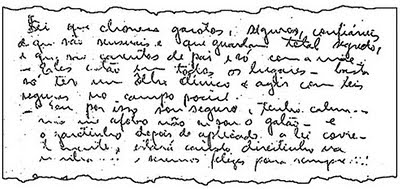 Sei que garotos, seguros, confiáveis
e que são sensuais e que guardam total segredo,
e que são carentes de pai e só com a mãe -
- Eles estão em todos os lugares - basta
só ter um olho clínico e agir com leis
seguras no campo social -
- Eu por isso sou seguro e tenho calma -
não me afobo não eu sou o galão - e
o garotinho depois de aplicado a lei corre-
tamente, estará caindo direitinho na
minha .... , seremos felizes para sempre...!!!